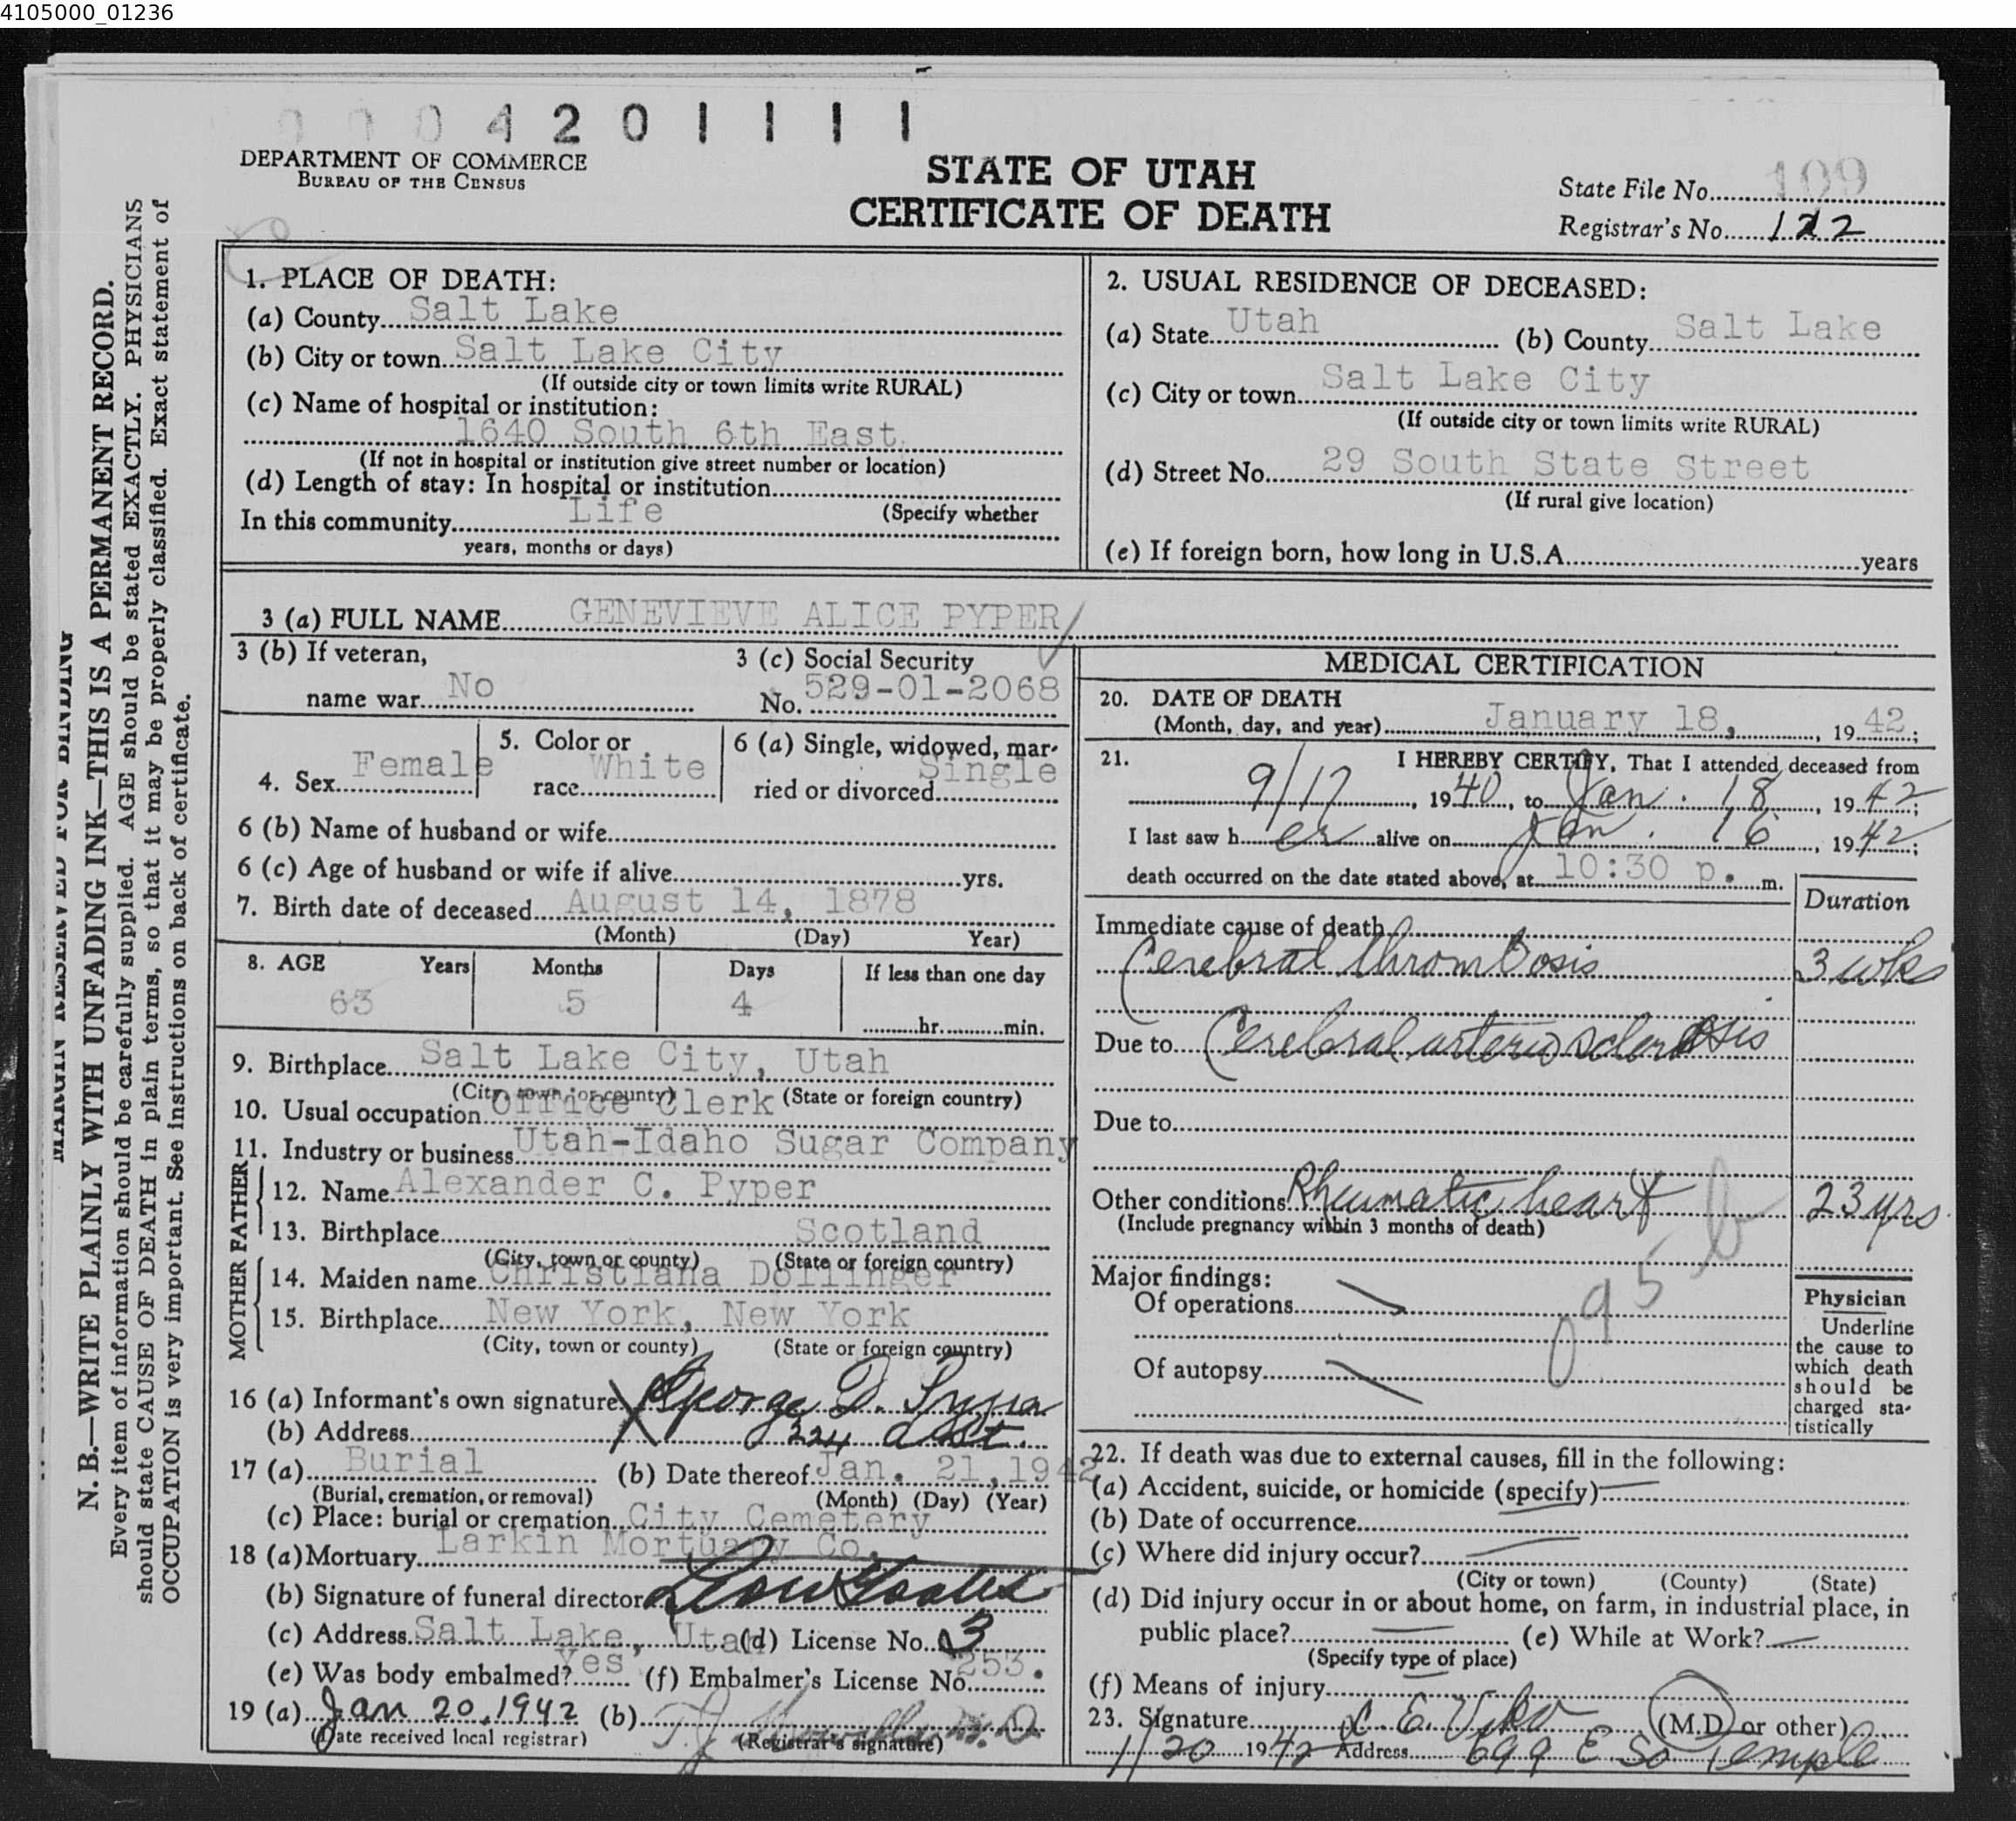 4105000_01236
0 0 0 4 2 0 1 1 1 1
DEPARTMENT OF COMMERCE
BUREAU OF THE CENSUS
STATE OF UTAH
CERTIFICATE OF DEATH
State File No. 109
Registrar's No. 122
MARGIN RESERVED FOR BINDING
N. B.—WRITE PLAINLY WITH UNFADING INK—THIS IS A PERMANENT RECORD.
Every item of information should be carefully supplied. AGE should be stated EXACTLY. PHYSICIANS
should state CAUSE OF DEATH in plain terms, so that it may be properly classified. Exact statement of
OCCUPATION is very important. See instructions on back of certificate.
1. PLACE OF DEATH:
(a) County Salt Lake
(b) City or town Salt Lake City
(If outside city or town limits write RURAL)
(c) Name of hospital or institution:
1640 South 6th East.
(If not in hospital or institution give street number or location)
(d) Length of stay: In hospital or institution
In this community Life (Specify whether
years, months or days)
2. USUAL RESIDENCE OF DECEASED:
(a) State Utah (b) County Salt Lake
(c) City or town Salt Lake City
(If outside city or town limits write RURAL)
(d) Street No. 29 South State Street
(If rural give location)
(e) If foreign born, how long in U.S.A. years
3 (a) FULL NAME GENEVIEVE ALICE PYPER
3 (b) If veteran,
name war No
3 (c) Social Security
No. 529-01-2068
4. Sex Female
5. Color or
race White
6 (a) Single, widowed, mar-
ried or divorced Single
6 (b) Name of husband or wife
6 (c) Age of husband or wife if alive yrs.
7. Birth date of deceased August 14, 1878
(Month) (Day) Year)
8. AGE Years Months Days If less than one day
63 5 4 hr. min.
9. Birthplace Salt Lake City, Utah
(City, town, or county) (State or foreign country)
10. Usual occupation Office Clerk
11. Industry or business Utah-Idaho Sugar Company
FATHER
12. Name Alexander C. Pyper
13. Birthplace Scotland
(City, town or county) (State or foreign country)
MOTHER
14. Maiden name Christiana Dollinger
15. Birthplace New York, New York
(City, town or county) (State or foreign country)
16 (a) Informant's own signature X George D. Pyper
(b) Address 224 A St.
17 (a) Burial (b) Date thereof Jan. 21, 1942
(Burial, cremation, or removal) (Month) (Day) (Year)
(c) Place: burial or cremation City Cemetery
18 (a) Mortuary Larkin Mortuary Co.
(b) Signature of funeral director
(c) Address Salt Lake, Utah (d) License No. 3
(e) Was body embalmed? Yes (f) Embalmer's License No. 253.
19 (a) Jan 20, 1942 (b) T. J. M. D
(Date received local registrar) (Registrar's signature)
MEDICAL CERTIFICATION
20. DATE OF DEATH
(Month, day, and year) January 18, 1942;
21. I HEREBY CERTIFY, That I attended deceased from
9/17, 1940, to Jan. 18, 1942;
I last saw her alive on Jan. 16, 1942;
death occurred on the date stated above, at 10:30 p. m.
Duration
Immediate cause of death
Cerebral thrombosis 3 wks
Due to Cerebral arteriosclerosis
Due to
Other conditions Rheumatic heart 23 yrs
(Include pregnancy within 3 months of death)
Major findings:
Of operations
Of autopsy
95 b
Physician
Underline
the cause to
which death
should be
charged sta-
tistically
22. If death was due to external causes, fill in the following:
(a) Accident, suicide, or homicide (specify)
(b) Date of occurrence
(c) Where did injury occur?
(City or town) (County) (State)
(d) Did injury occur in or about home, on farm, in industrial place, in
public place? (e) While at Work?
(Specify type of place)
(f) Means of injury
23. Signature L. E. Viko (M.D. or other)
1/20 1942 Address 699 E So Temple